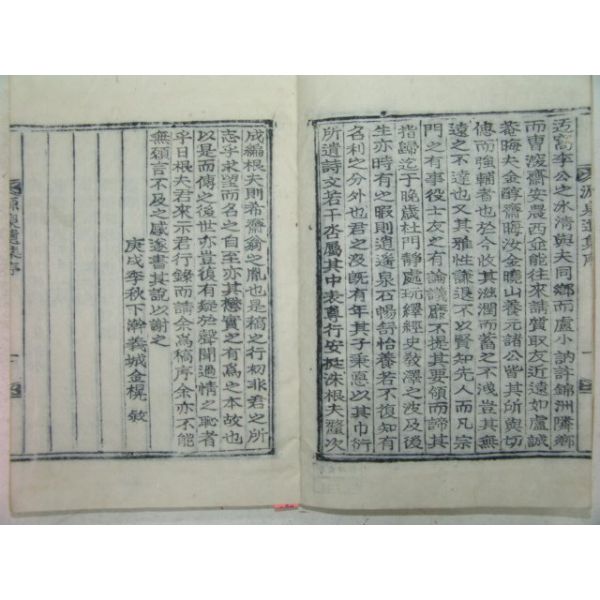 迃窩李公之冰清與夫同鄉而盧小訥許錦洲隣鄉
而曺深齋安農西並能往來請質取友近遠如盧誠
菴晦夫金醇齋晦汝金曉山養元諸公皆其所與切
偲而強輔者也於今收其滋潤而蓄之不洩豈其無
遠之不達也又其雅性謙退不以賢知先人而凡宗
門之有事役士友之有論議靡不提其要領而諦其
指歸迄于晚歲杜門靜處玩繹經史發澤之波及後
生亦時有之暇則逍遙泉石暢舒怡養若不復知有
名利之分外也君之沒旣有年其子秉悳以其巾衍
所遺詩文若干沓屬其中表尊行安挺洙根夫釐次
成編根夫則希齋翁之胤也是稿之行初非君之所
志乎求望而名之自至亦其懋實之有爲之本故也
以是而傳之後世亦豈復有疑於聲聞過情之恥者
乎日根夫君來示君行錄而請余爲稿序余亦不能
無顧言不及之感遂書其說以謝之
庚戌季秋下澣義城金榥敘